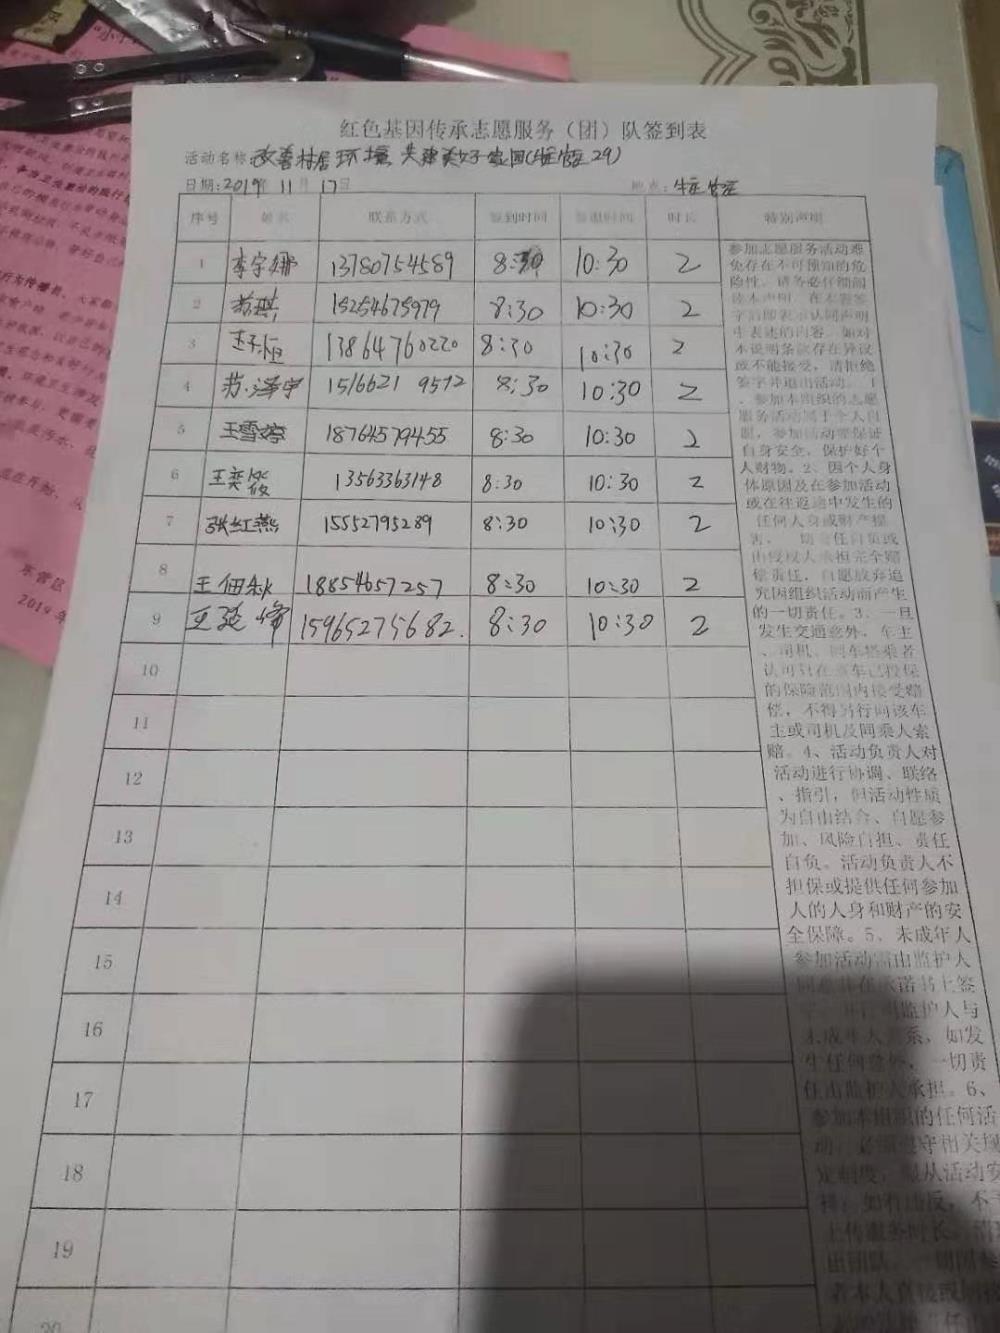 红色基因传承志愿服务（团）队签到表
活动名称：改善村居环境 共建美好家园
日期：2019年 11月 17日 地点：
序号 姓名 联系方式 签到时间 签退时间 时长 特别声明
1 李宇娜 13780754589 8:30 10:30 2
2 15254675979 8:30 10:30 2
3 13864760220 8:30 10:30 2
4 苏泽宇 15166219572 8:30 10:30 2
5 王雪婷 18764579455 8:30 10:30 2
6 王奕筱 13563363148 8:30 10:30 2
7 张红燕 15552795289 8:30 10:30 2
8 王佃秋 18854657257 8:30 10:30 2
9 王延峰 15965275682. 8:30 10:30 2
10
11
12
13
14
15
16
17
18
19
20
参加志愿服务活动难
免存在不可预知的危
险性，请务必仔细阅
读本声明，在本表签
字后即表示认同声明
中表述的内容。如对
本说明条款存在异议
或不能接受，请拒绝
签字并退出活动。1
、参加本组织的志愿
服务活动属于个人自
愿，参加活动需保证
自身安全，保护好个
人财物。2、因个人身
体原因及在参加活动
或在往返途中发生的
任何人身或财产损
害，一切责任自负或
由受权人承担完全赔
偿责任，自愿放弃追
究因组织活动而产生
的一切责任。3、一旦
发生交通意外，车主
、司机、同车搭乘者
认可只在该车已投保
的保险范围内接受赔
偿，不得另行向该车
主或司机及同乘人索
赔。4、活动负责人对
活动进行协调、联络
、指引，但活动性质
为自由结合、自愿参
加、风险自担、责任
自负。活动负责人不
担保或提供任何参加
人的人身和财产的安
全保障。5、未成年人
参加活动需由监护人
同意并在承诺书上签
字，并注明监护人与
未成年人关系，如发
生任何意外，一切责
任由监护人承担。6、
参加本组织的任何活
动，必须遵守相关规
定制度，服从活动安
排，如有违反，不予
上传服务时长，清
出团队，一切因参